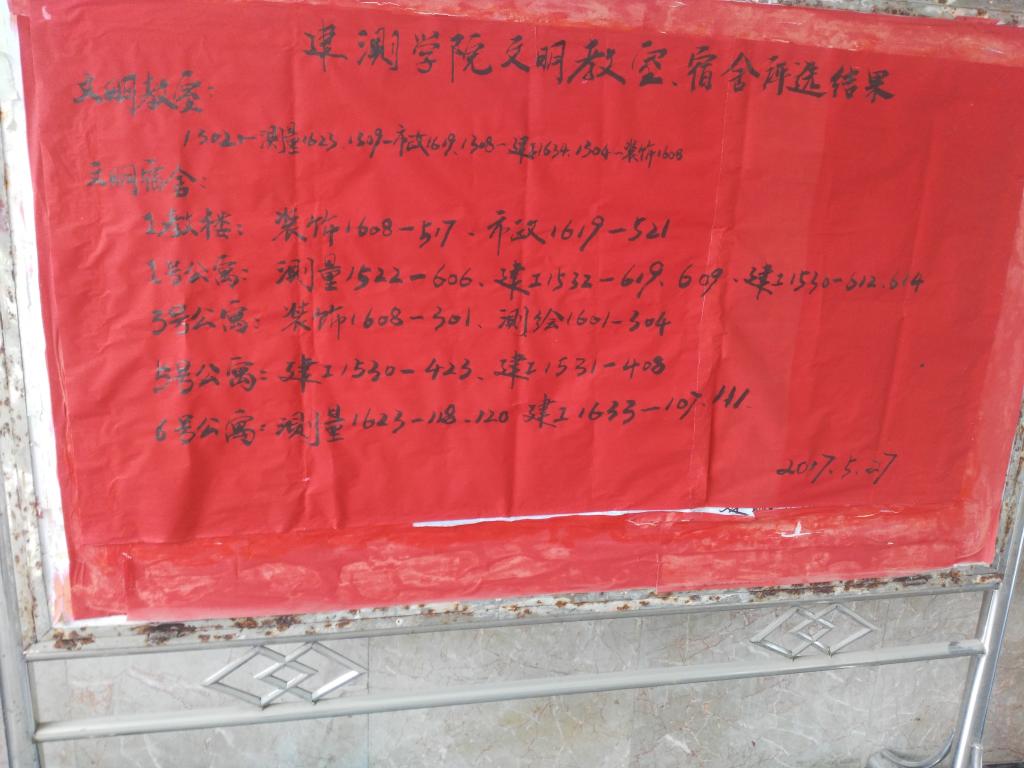 建测学院文明教室、宿舍评选结果
文明教室:
1302—测量1623、1309—市政1619、1308—建工1634、1304—装饰1608
文明宿舍:
1教楼: 装饰1608—517、市政1619—521
1号公寓: 测量1522—606、建工1532—619、609、建工1530—612、614
3号公寓: 装饰1608—301、测绘1601—304
5号公寓: 建工1530—423、建工1531—408
6号公寓: 测量1623—118、120 建工1633—107、111
2017.5.27